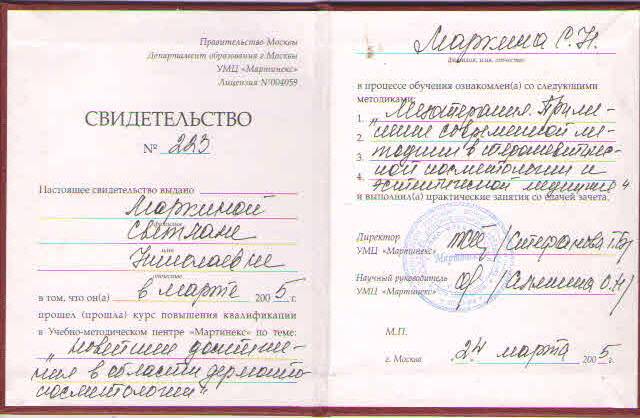 Правительство Москвы
Департамент образования г.Москвы
УМЦ «Мартинекс»
Лицензия №004059
СВИДЕТЕЛЬСТВО
№ 223
Настоящее свидетельство выдано
Маркиной
фамилия
Светлане
имя
Николаевне
отчество
в том, что он(а) в марте 2005 г.
прошел (прошла) курс повышения квалификации
в Учебно-методическом центре «Мартинекс» по теме:
„Новейшие достиже-
ния в области дермато-
косметологии“
Маркина С.Н.
фамилия, имя, отчество
в процессе обучения ознакомлен(а) со следующими
методиками:
1. „Мезотерапия. Приме-
2. нение современной ме-
3. тодики в терапевтичес-
4. кой косметологии и
эстетической медицине“
и выполнил(а) практические занятия со сдачей зачета.
Директор
УМЦ «Мартинекс»
Научный руководитель
УМЦ «Мартинекс»
Мартинекс
М.П.
г. Москва 24 марта 2005 г.